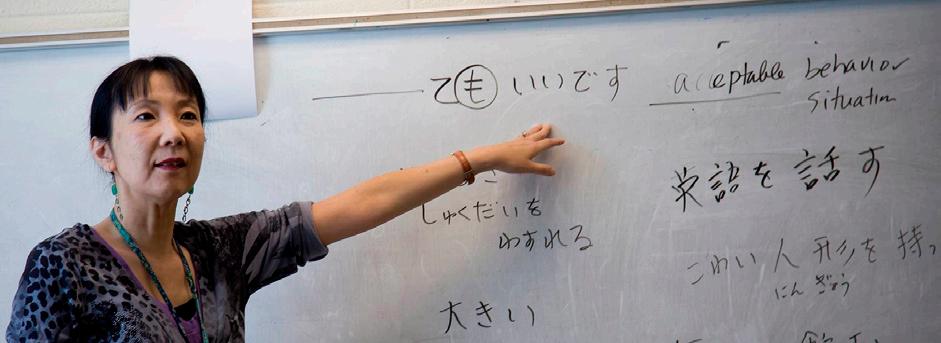 ても いいです
acceptable behavior
situation
しゅくだいを
わすれる
大きい
英語を話す
こわい人形を持っ
にんぎょう